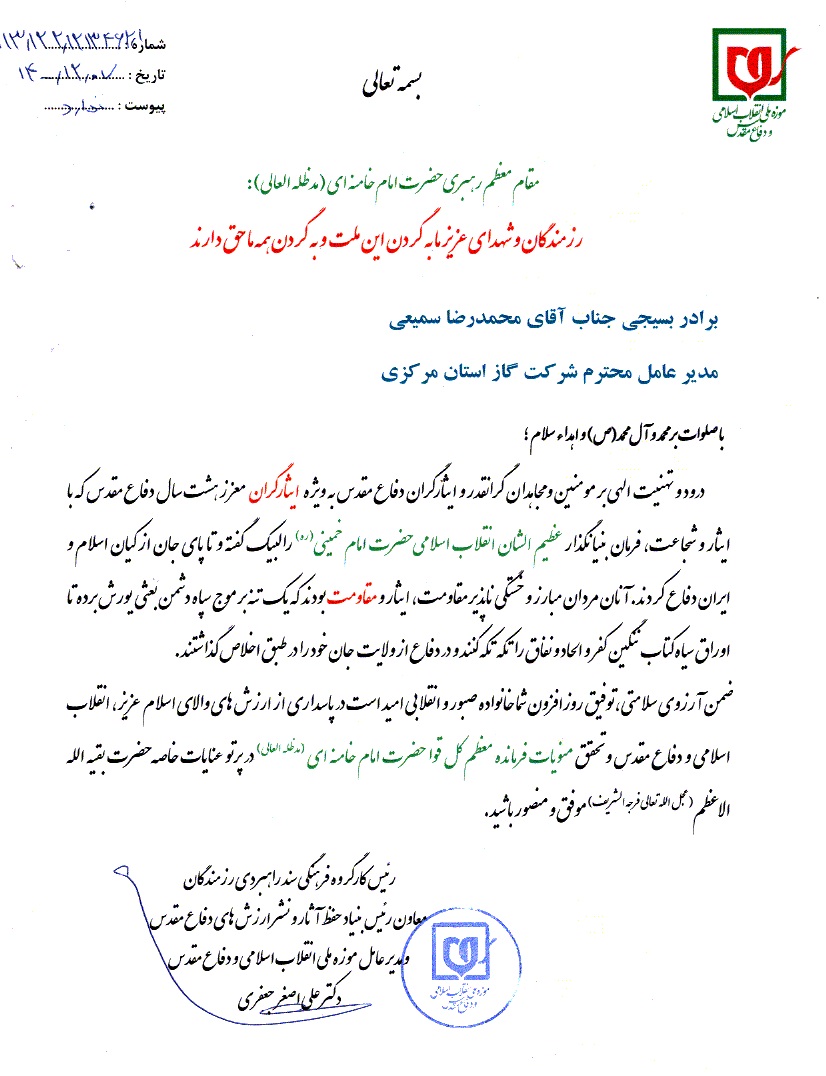 شماره:
تاریخ :
پیوست : ندارد
موزه ملی انقلاب اسلامی
و دفاع مقدس
بسمه تعالی
مقام معظم رهبری حضرت امام خامنه ای (مدظله العالی):
رزمندگان و شهدای عزیز ما به گردن این ملت و به گردن همه ما حق دارند
برادر بسیجی جناب آقای محمدرضا سمیعی
مدیر عامل محترم شرکت گاز استان مرکزی
با صلوات بر محمد و آل محمد (ص) و اهداء سلام ؛
درود و تهنیت الهی بر مومنین و مجاهدان گرانقدر و ایثارگران دفاع مقدس به ویژه ایثارگران معزز هشت سال دفاع مقدس که با
ایثار و شجاعت، فرمان بنیانگذار عظیم الشان انقلاب اسلامی حضرت امام خمینی (ره) را لبیک گفته و تا پای جان از کیان اسلام و
ایران دفاع کردند. آنان مردان مبارز و خستگی ناپذیر مقاومت، ایثار و مقاومت بودند که یک تنه بر موج سپاه دشمن بعثی یورش برده تا
اوراق سیاه کتاب ننگین کفر و الحاد و نفاق را تکه تکه کنند و در دفاع از ولایت جان خود را در طبق اخلاص گذاشتند.
ضمن آرزوی سلامتی، توفیق روز افزون شما خانواده صبور و انقلابی امید است در پاسداری از ارزش های والای اسلام عزیز، انقلاب
اسلامی و دفاع مقدس و تحقق منویات فرمانده معظم کل قوا حضرت امام خامنه ای (مدظله العالی) در پرتو عنایات خاصه حضرت بقیه الله
الاعظم (عجل الله تعالی فرجه الشریف) موفق و منصور باشید.
رئیس کارگروه فرهنگی سند راهبردی رزمندگان
معاون رئیس بنیاد حفظ آثار و نشر ارزش های دفاع مقدس
و مدیر عامل موزه ملی انقلاب اسلامی و دفاع مقدس
دکتر علی اصغر جعفری
موزه ملی انقلاب اسلامی
و دفاع مقدس